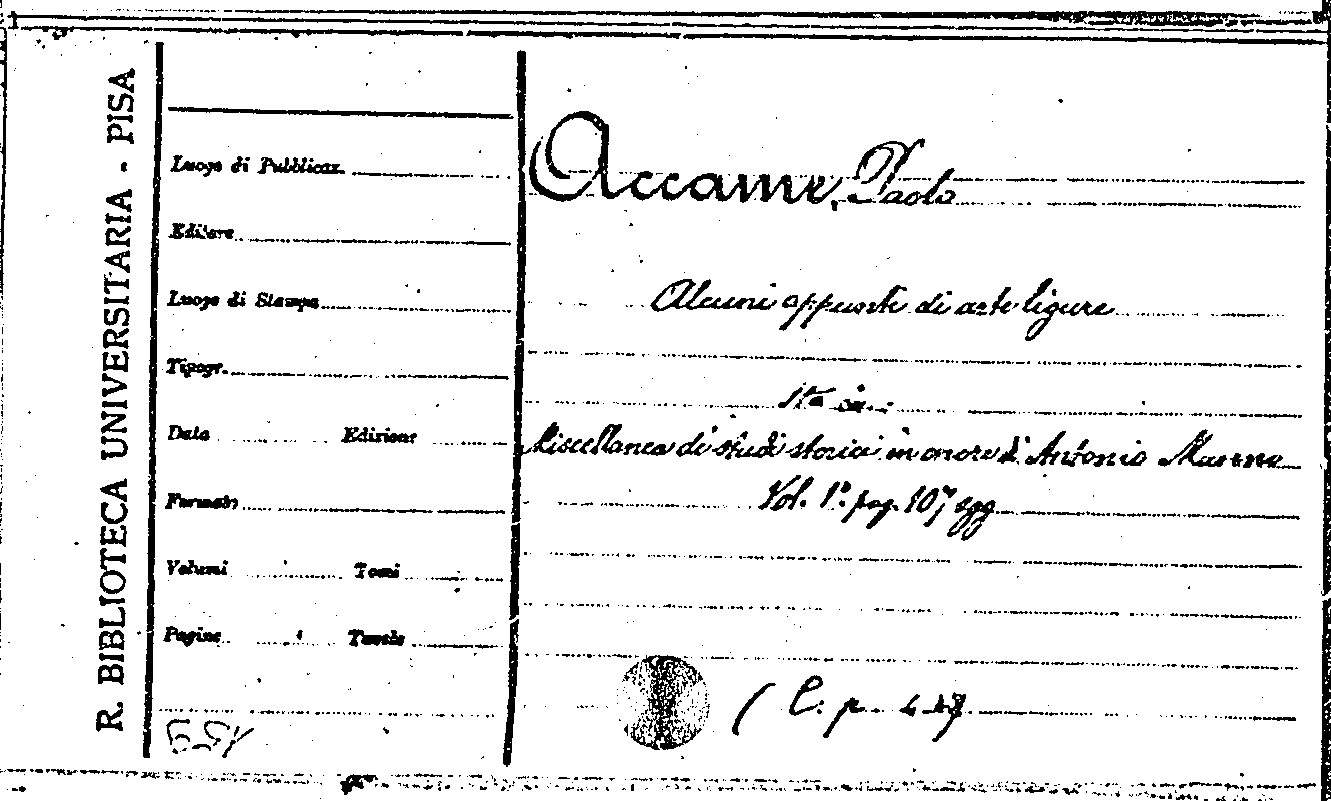 R. BIBLIOTECA UNIVERSITARIA - PISA
Luogo di Pubblicaz.
Editore
Luogo di Stampa
Tipogr.
Data Edizione
Formato
Volumi Tomi
Pagine Tavole
Accame, Paolo
Alcuni appunti di arte ligure
Sta in:
Miscellanea di studi storici in onore di Antonio Manno
Vol. 1° pag. 107 sgg